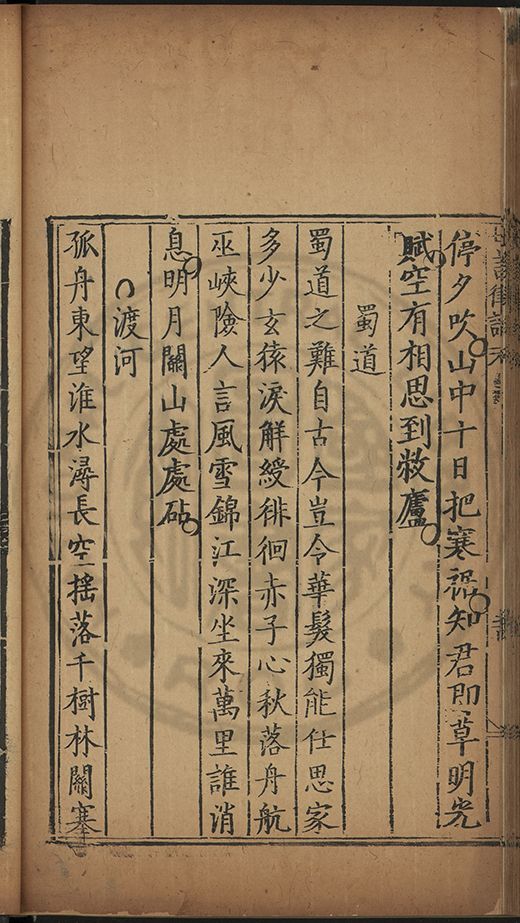 停夕吹山中十日把寒裾知君即草明光
賦空有相思到敝廬
蜀道
蜀道之難自古今豈令華髮獨能任思家
多少玄猿淚解綬徘徊赤子心秋落舟航
巫峽險人言風雪錦江深坐來萬里誰消
息明月關山處處砧
渡河
孤舟東望淮水潯長空搖落千樹林關塞